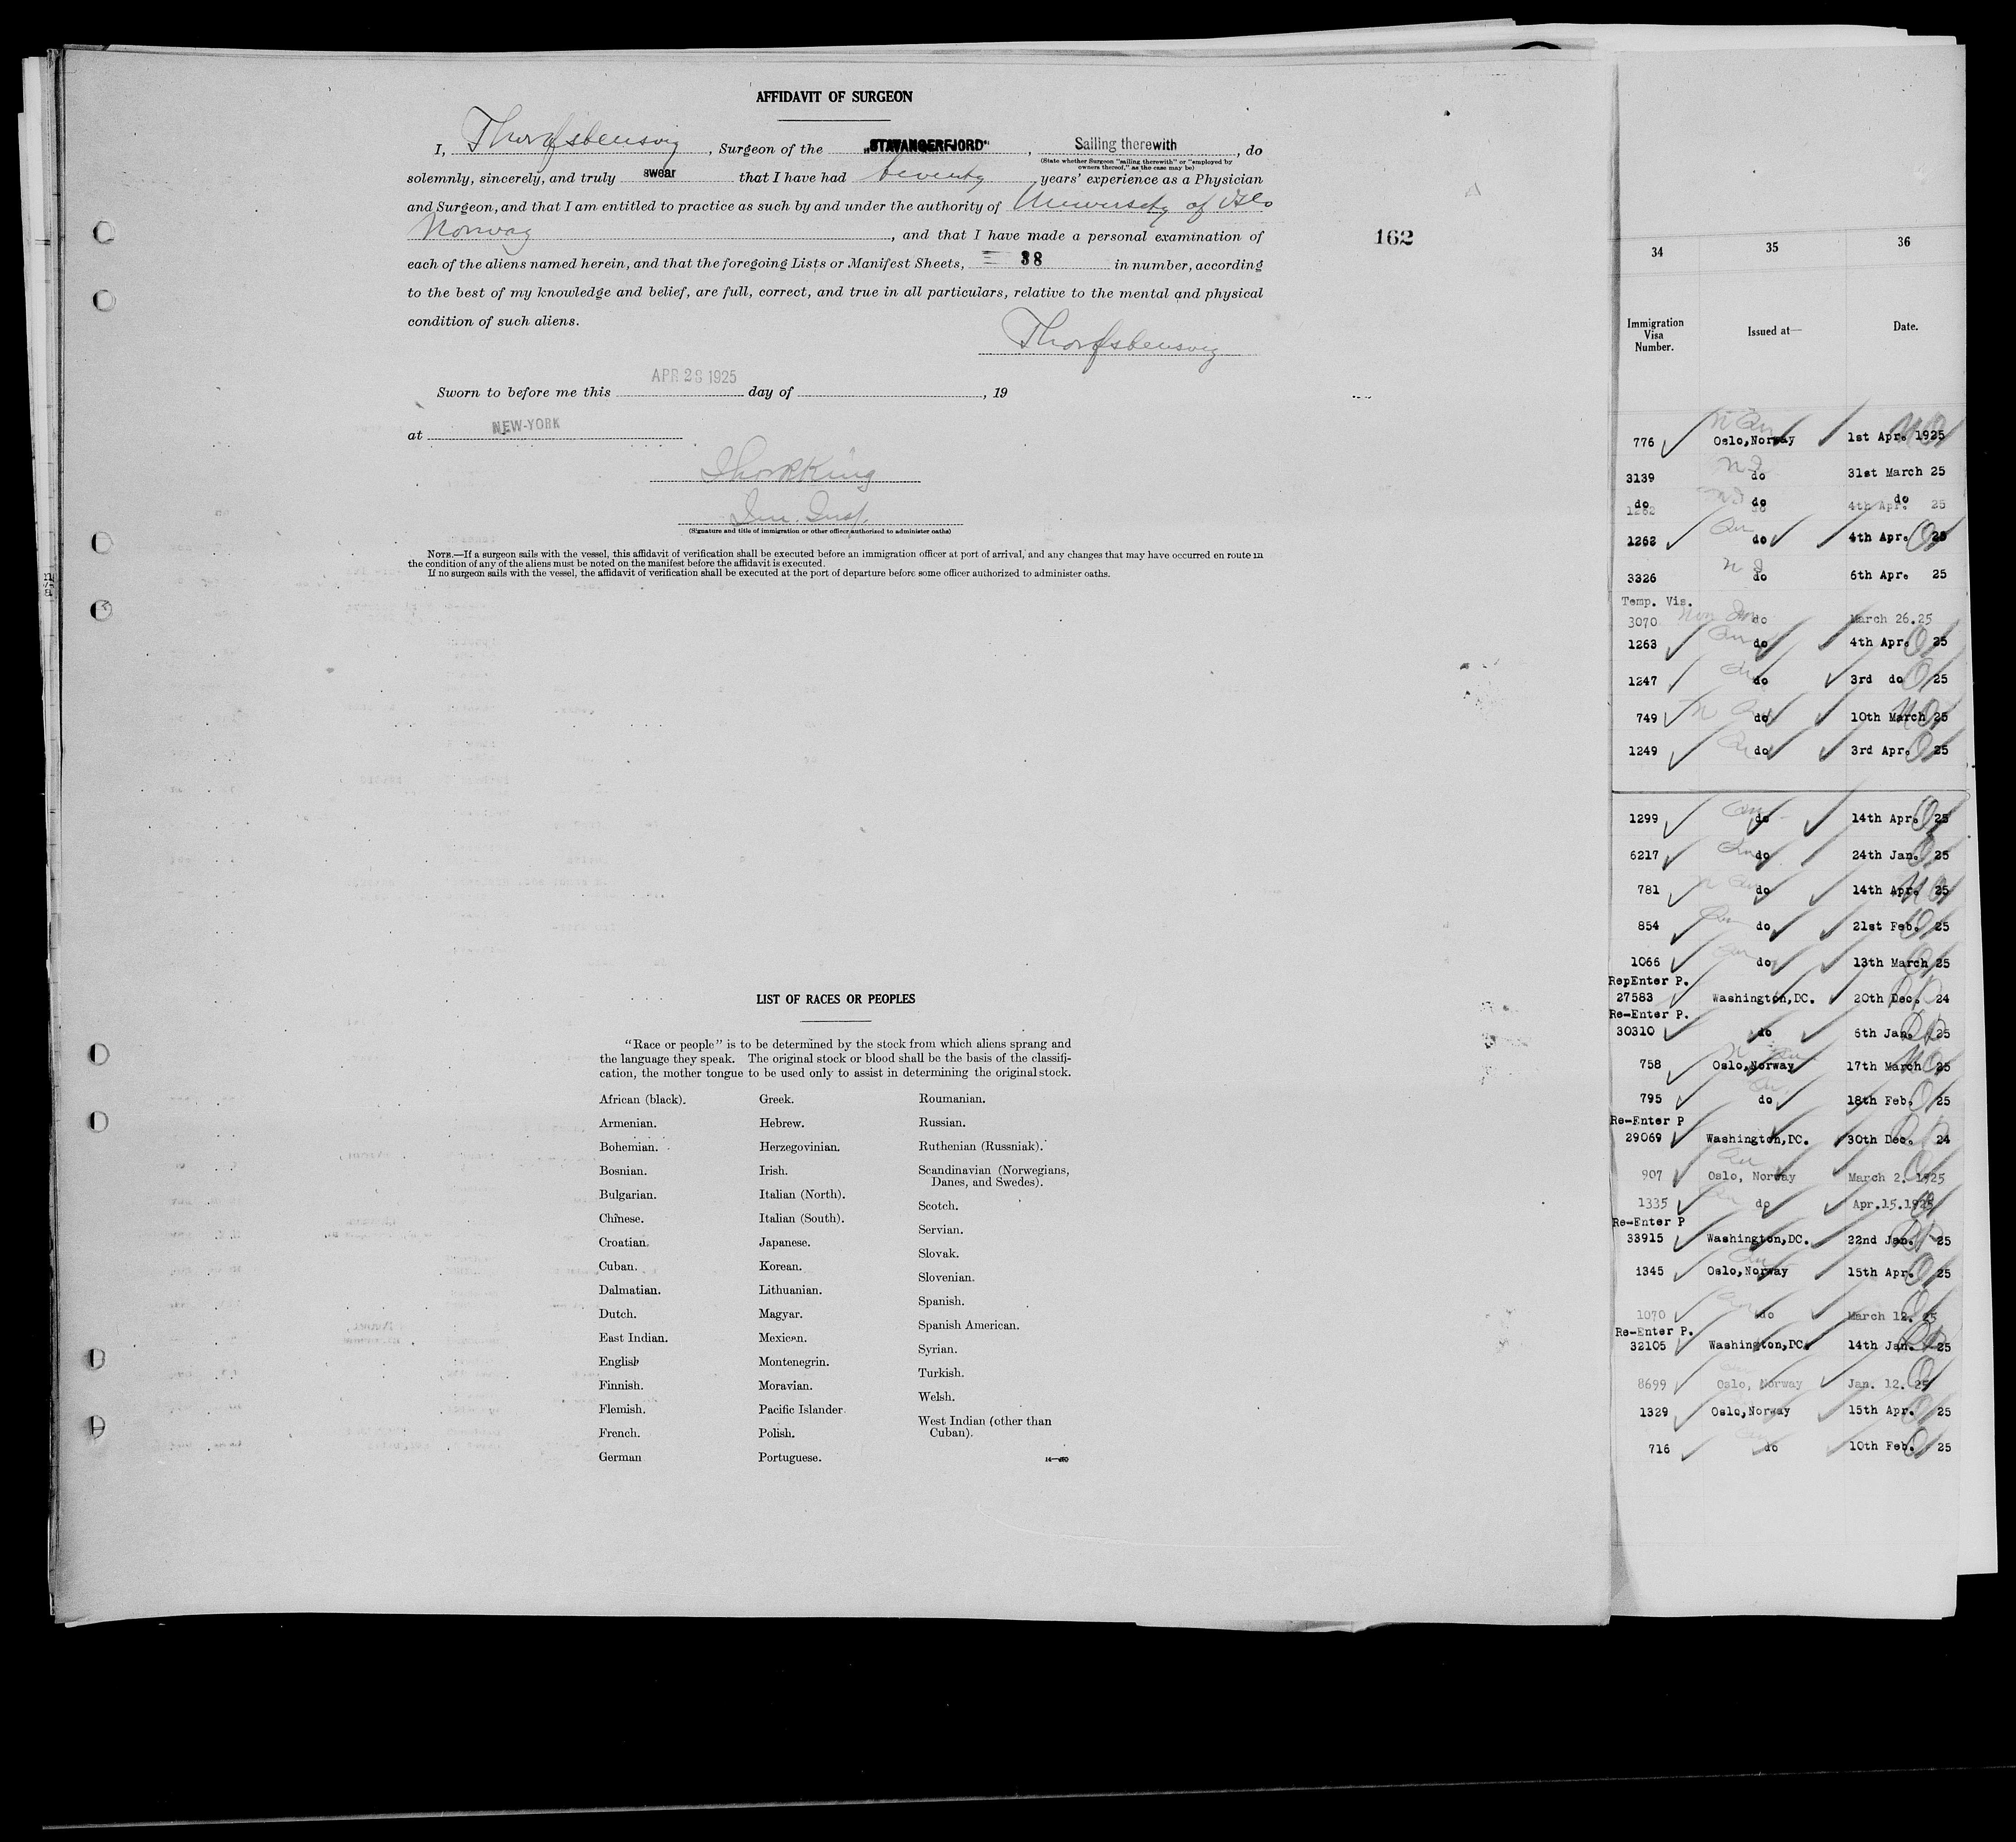 AFFIDAVIT OF SURGEON
I, Thorfstensvig, Surgeon of the "STAVANGERFJORD", Sailing therewith, do
(State whether Surgeon "sailing therewith" or "employed by
owners thereof," as the case may be)
solemnly, sincerely, and truly swear that I have had twenty years' experience as a Physician
and Surgeon, and that I am entitled to practice as such by and under the authority of University of Oslo
Norway, and that I have made a personal examination of
each of the aliens named herein, and that the foregoing Lists or Manifest Sheets, 38 in number, according
to the best of my knowledge and belief, are full, correct, and true in all particulars, relative to the mental and physical
condition of such aliens.
Thorfstensvig
Sworn to before me this APR 28 1925 day of , 19
at NEW-YORK
King
Im. Insp.
(Signature and title of immigration or other officer authorized to administer oaths)
NOTE.—If a surgeon sails with the vessel, this affidavit of verification shall be executed before an immigration officer at port of arrival, and any changes that may have occurred en route in
the condition of any of the aliens must be noted on the manifest before the affidavit is executed.
If no surgeon sails with the vessel, the affidavit of verification shall be executed at the port of departure before some officer authorized to administer oaths.
162
LIST OF RACES OR PEOPLES
"Race or people" is to be determined by the stock from which aliens sprang and
the language they speak. The original stock or blood shall be the basis of the classifi-
cation, the mother tongue to be used only to assist in determining the original stock.
African (black).
Armenian.
Bohemian.
Bosnian.
Bulgarian.
Chinese.
Croatian.
Cuban.
Dalmatian.
Dutch.
East Indian.
English
Finnish.
Flemish.
French.
German
Greek.
Hebrew.
Herzegovinian.
Irish.
Italian (North).
Italian (South).
Japanese.
Korean.
Lithuanian.
Magyar.
Mexican.
Montenegrin.
Moravian.
Pacific Islander.
Polish.
Portuguese.
Roumanian.
Russian.
Ruthenian (Russniak).
Scandinavian (Norwegians,
Danes, and Swedes).
Scotch.
Servian.
Slovak.
Slovenian.
Spanish.
Spanish American.
Syrian.
Turkish.
Welsh.
West Indian (other than
Cuban).
34 35 36
Immigration
Visa
Number.
Issued at—
Date.
776 Oslo,Norway 1st Apr. 1925
3139 do 31st March 25
do do do
1262 do 4th Apr. 25
1262 do 4th Apr. 25
3326 do 6th Apr. 25
Temp. Vis.
3070 Non Im do March 26.25
1263 do 4th Apr. 25
1247 do 3rd do 25
749 do 10th March 25
1249 do 3rd Apr. 25
1299 do 14th Apr. 25
6217 do 24th Jan. 25
781 do 14th Apr. 25
854 do 21st Feb. 25
1066 do 13th March 25
RepEnter P.
27583 Washington,DC. 20th Dec. 24
Re-Enter P.
30310 do 6th Jan. 25
758 Oslo,Norway 17th March 25
795 do 18th Feb. 25
Re-Enter P
29069 Washington,DC. 30th Dec. 24
907 Oslo, Norway March 2. 1925
1335 do Apr.15.1925
Re-Enter P
33915 Washington,DC. 22nd Jan. 25
1345 Oslo,Norway 15th Apr. 25
1070 do March 12. 25
Re-Enter P.
32105 Washington,DC 14th Jan. 25
8699 Oslo, Norway Jan. 12. 25
1329 Oslo,Norway 15th Apr. 25
716 do 10th Feb. 25